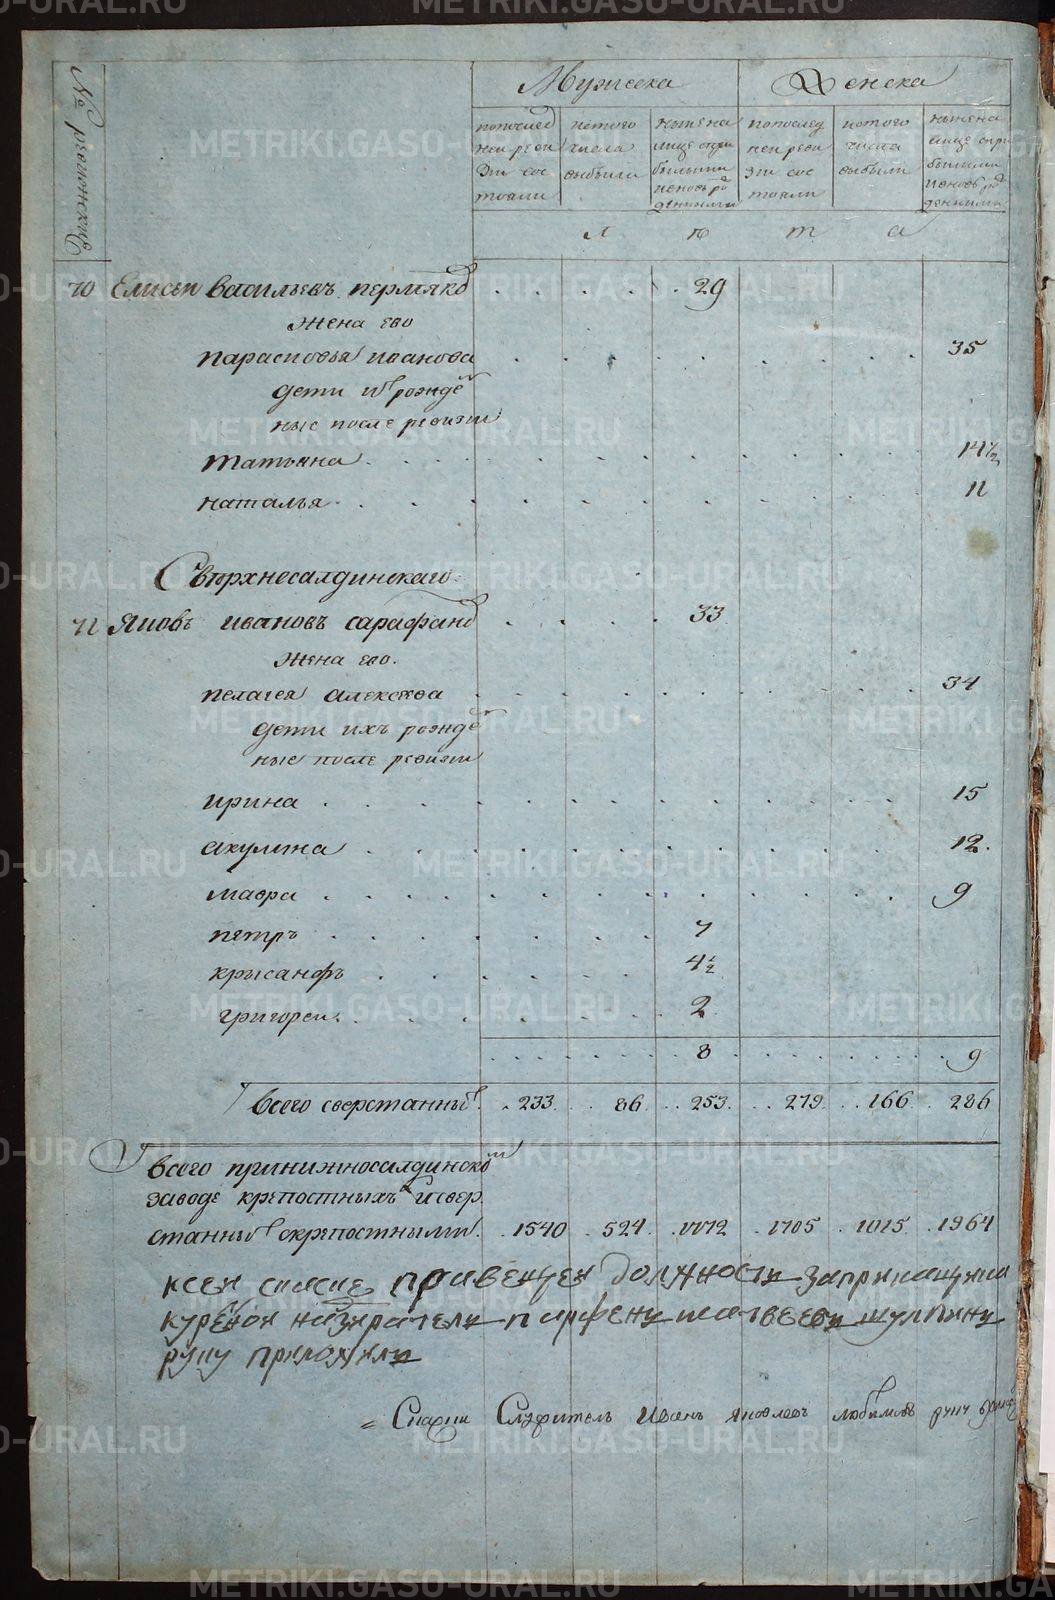 № ревижский
Мужеска
Женска
попослед
ней реви
зіи сос
тояли
ис того
числа
выбыли
ныне на
лице спри
былыми
и новоро
жденными
попослед
ней реви
зіи сос
тояли
ис того
числа
выбыли
ныне на
лице спри
былыми
и новоро
жденными
л е т а
70 Елисеи васильевъ пермяко 29
жена ево
парасковья иванова 35
дети их рожде
ные после ревизіи
татьяна 14 1/2
наталья 11
С верхнесалдинскаго
71 Яковъ ивановъ сарафано 33
жена ево
пелагея алексеева 34
дети ихъ рожде
ные после ревизіи
ирина 15
акулина 12
мавра 9
петръ 7
крисанфъ 4 1/2
григореи 2
8 9
всего сверстаных 233 86 253 279 166 286
всего принижносалдинском
заводе крепостныхъ исвер
станных скрепостными 1540 524 1772 1705 1015 1964
ксеи скаске правещеи должность заприкащика
куренои надзиратель парфенъ матвеевъ шулпинъ
руку приложилъ
Скаски Служитель Иванъ Яковлевъ любимовъ
METRIKI.GASO-URAL.RU